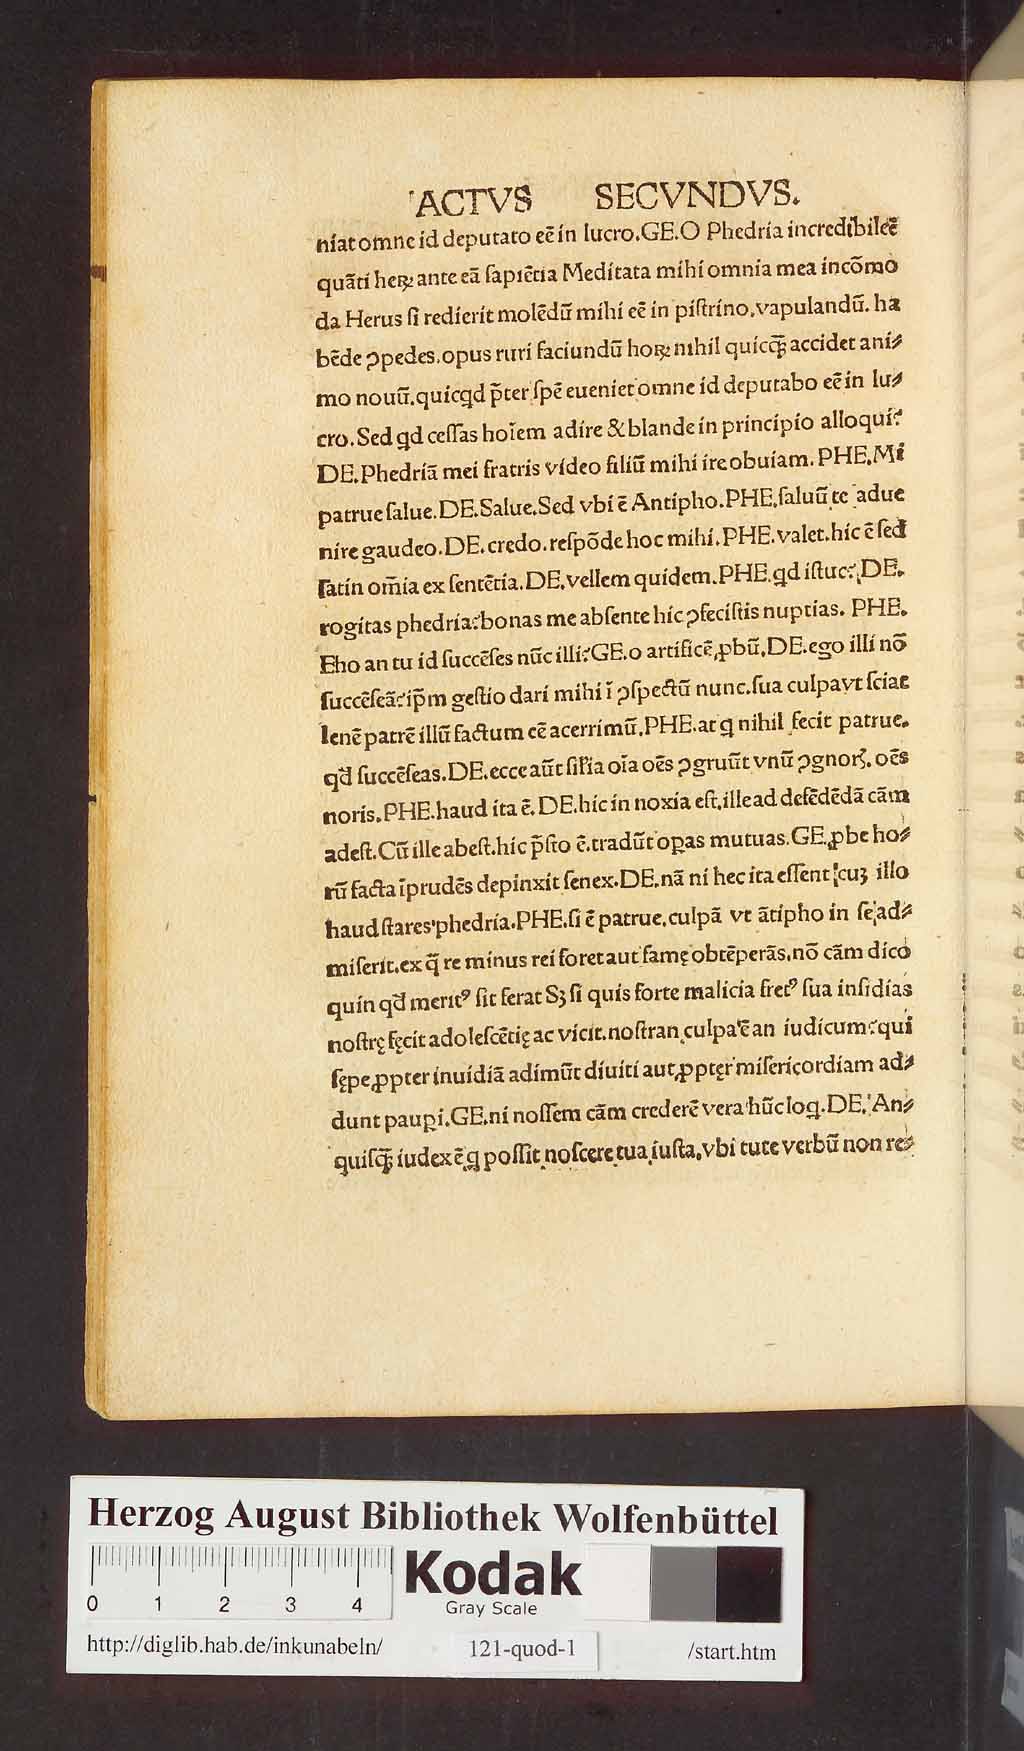 ACTVS SECVNDVS.
niat omne id deputato eē in lucro. GE. O Phedria incredibile ē
quāti heꝝ ante eā ſapiētia Meditata mihi omnia mea incōmo
da Herus ſi redierit molēdū mihi eē in piſtrino. vapulandū. ha
bēde ꝯpedes. opus ruri faciundū hoꝝ nihil quicq̄ꝫ accidet ani⸗
mo nouū. quicꝗd p̄ter ſpē eueniet omne id deputabo eē in lu⸗
cro. Sed ꝗd ceſſas hoīem adire & blande in principio alloqui?
DE. Phedriā mei fratris video filiū mihi ire obuiam. PHE. Mi
patrue ſalue. DE. Salue. Sed vbi ē Antipho. PHE. ſaluū te adue
nire gaudeo. DE. credo. reſpōde hoc mihi. PHE. valet. hic ē ſed
ſatin om̄ia ex ſentētia. DE. vellem quidem. PHE. ꝗd iſtuc? DE.
rogitas phedria? bonas me abſente hic ꝯfeciſtis nuptias. PHE.
Eho an tu id ſuccēſes nūc illi? GE. o artificē ꝓbū. DE. ego illi nō
ſuccēſeā? ip̄m geſtio dari mihi ī ꝯſpectū nunc. ſua culpa vt ſciat
lenē patrē illū factum eē acerrimū. PHE. at ꝗ nihil fecit patrue.
qd̄ ſuccēſeas. DE. ecce aūt ſil̄ia oīa oēs ꝯgruūt vnū ꝯgnorꝫ. oēs
noris. PHE. haud ita ē. DE. hic in noxia eſt. ille ad defēdēdā cām
adeſt. Cū ille abeſt. hic p̄ſto ē. tradūt oꝑas mutuas. GE. ꝓbe ho⸗
rū facta īprudēs depinxit ſenex. DE. nā ni hec ita eſſent cuꝫ illo
haud ſtares phedria. PHE. ſi ē patrue. culpā vt ātipho in ſe ad⸗
miſerit. ex q̄ re minus rei foret aut famę obtēperās. nō cām dico
quin qd̄ meritꝰ ſit ferat Sꝫ ſi quis forte malicia fretꝰ ſua inſidias
noſtrę fęcit adoleſcētię ac vicit. noſtran culpa ē an iudicum? qui
ſępe ꝓpter inuidiā adimūt diuiti aut ꝓptęr miſericordiam ad⸗
dunt pauꝑi. GE. ni noſſem cām crederē vera hūc loꝗ. DE. An⸗
quiſq̄ꝫ iudex ē ꝗ poſſit noſcere tua iuſta. vbi tute verbū non re⸗
Herzog August Bibliothek Wolfenbüttel
Kodak
Gray Scale
0 1 2 3 4
http://diglib.hab.de/inkunabeln/ 121-quod-1 /start.htm